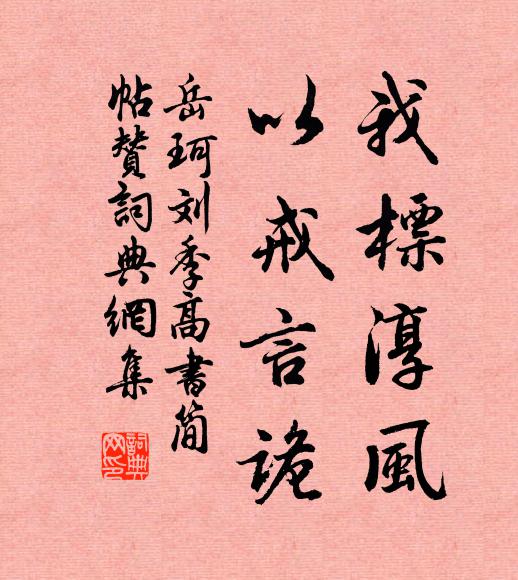 我標淳風
以戒言詭
岳珂刘季高書简
帖贊詞典網集
詞典网印